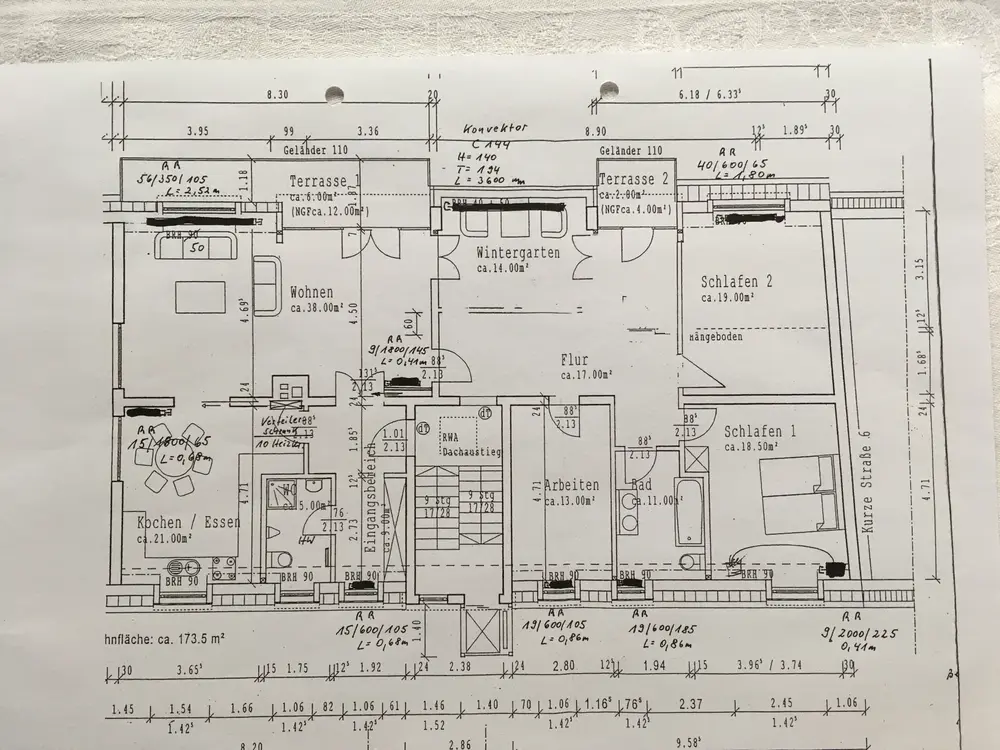 8.30
20
6.18 / 6.33⁵
30
3.95
99
3.36
8.90
12⁵
1.89⁵
30
Konvektor
C 144
H = 140
T = 194
L = 3600 mm
Geländer 110
Geländer 110
RR
56/350/105
L = 2,52m
RR
40/600/65
L = 1,80m
1.18
Terrasse 1
ca.6.00m²
(NGFca.12.00m²)
1.87⁵
Terrasse 2
ca.2.00m²
(NGFca.4.00m²)
BRH 90
50
Wintergarten
ca.14.00m²
Schlafen 2
ca.19.00m²
Hängeboden
Wohnen
ca.38.00m²
4.69⁵
4.50
60
RR
9/1800/145
L = 0,41m
88⁵
2.13
Flur
ca.17.00m²
3.15
12⁵
1.68⁵
24
24
131⁵
2.13
24
24
RR
15/1800/65
L = 0,68m
Verteiler
schrank
10 Heizkr.
88⁵
2.13
1.85⁵
1.01
2.13
RWA
Dachausstieg
88⁵
2.13
88⁵
2.13
88⁵
2.13
Schlafen 1
ca.18.50m²
Kurze Straße 6
4.71
Kochen / Essen
ca.21.00m²
4.71
WC
ca.5.00m²
HW
76
2.13
12⁵
2.73
Eingangsbereich
ca.9.00m²
9 Stg
17/28
9 Stg
17/28
4.71
Arbeiten
ca.13.00m²
Bad
ca.11.00m²
BRH 90
BRH 90
BRH 90
BRH 90
BRH 90
BRH 90
hnfläche: ca. 173.5 m²
RR
15/600/105
L = 0,68m
1.40
RR
19/600/105
L = 0,86m
RR
19/600/185
L = 0,86m
RR
9/2000/225
0,41m
30
3.65⁵
15
1.75
12⁵
1.92
24
2.38
24
2.80
12⁵
1.94
15
3.96⁵ / 3.74
30
1.45
1.54
1.66
1.06
82
1.06
61
1.46
1.40
70
1.06
1.16⁵
76⁵
2.37
2.45
1.06
1.42⁵
1.42⁵
1.42⁵
1.52
1.42⁵
1.42⁵
1.42⁵
8.20
2.86
9.58⁵